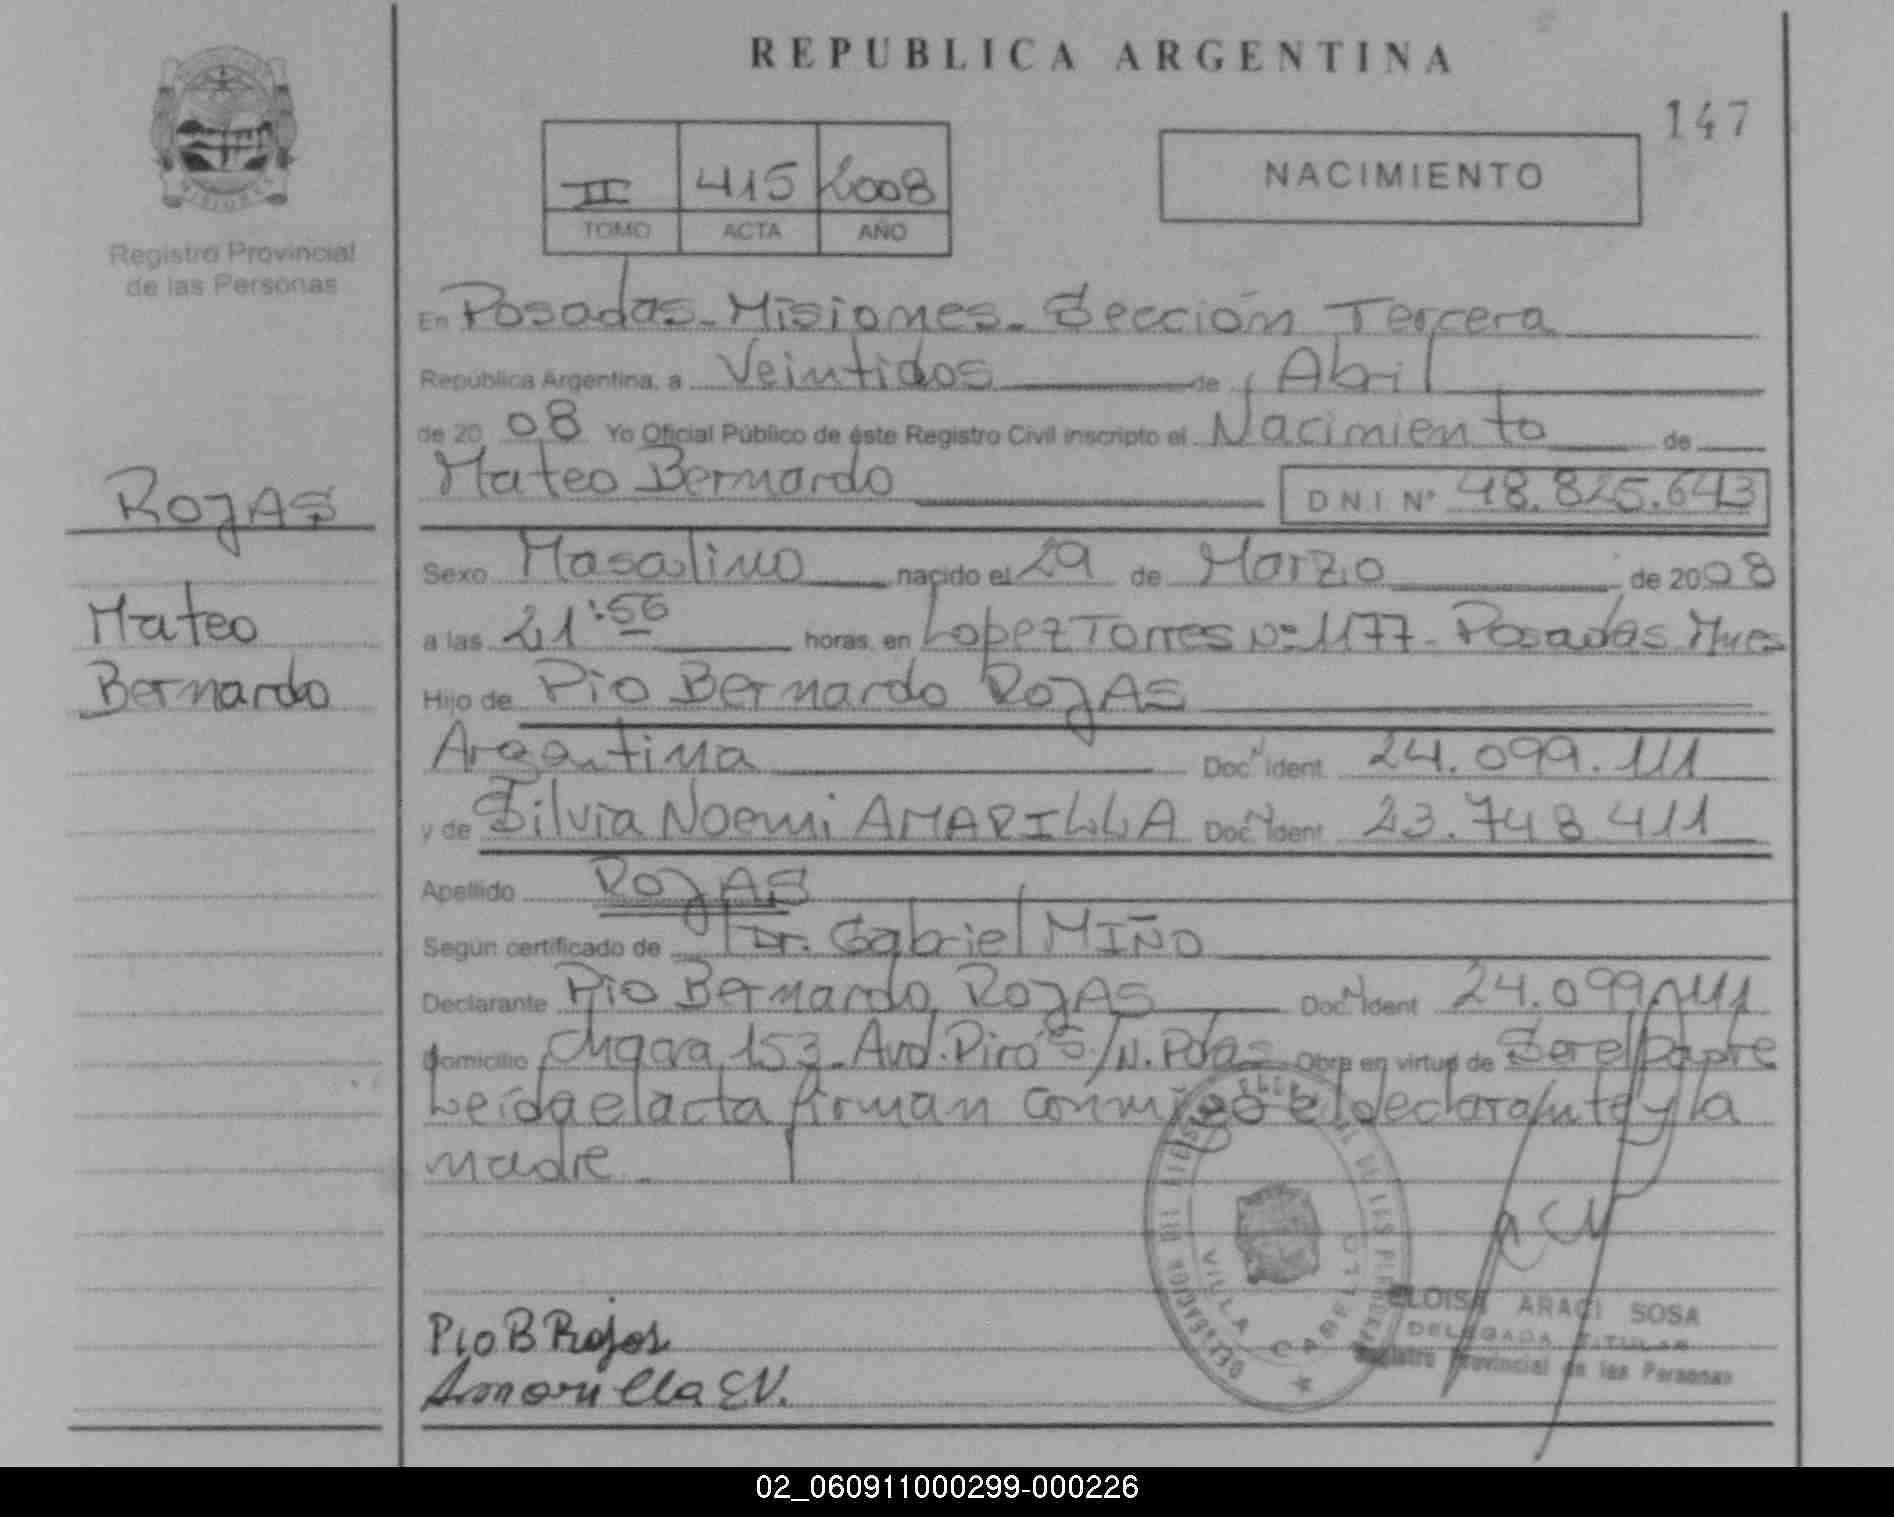 REPUBLICA ARGENTINA
147
NACIMIENTO
II 415 2008
TOMO ACTA AÑO
MISIONES
Registro Provincial
de las Personas
En Posadas - Misiones - Sección Tercera
República Argentina, a Veintidos de Abril
de 20 08 Yo Oficial Público de éste Registro Civil inscripto el Nacimiento de
Mateo Bernardo D.N.I. Nº 48.825.643
ROJAS
Mateo
Bernardo
Sexo Masculino nacido el 29 de Marzo de 2008
a las 21:56 horas, en Lopez Torres Nº 1177 - Posadas Mnes
Hijo de Pio Bernardo ROJAS
Argentina Doc. Ident. 24.099.111
y de Silvia Noemi AMARILLA Doc. Ident. 23.748.411
Apellido ROJAS
Según certificado de Dr. Gabriel MIÑO
Declarante Pio Bernardo ROJAS Doc. Ident. 24.099.111
Domicilio Chacra 153 - Avd. S/N. Pdas Obra en virtud de Ser el Padre
Leída el acta firman conmigo el declarante y la
madre
VILLA CABELLO
ELOISA ARACI SOSA
DELEGADA TITULAR
Registro Provincial de las Personas
Pio B Rojas
Amarilla
02_060911000299-000226